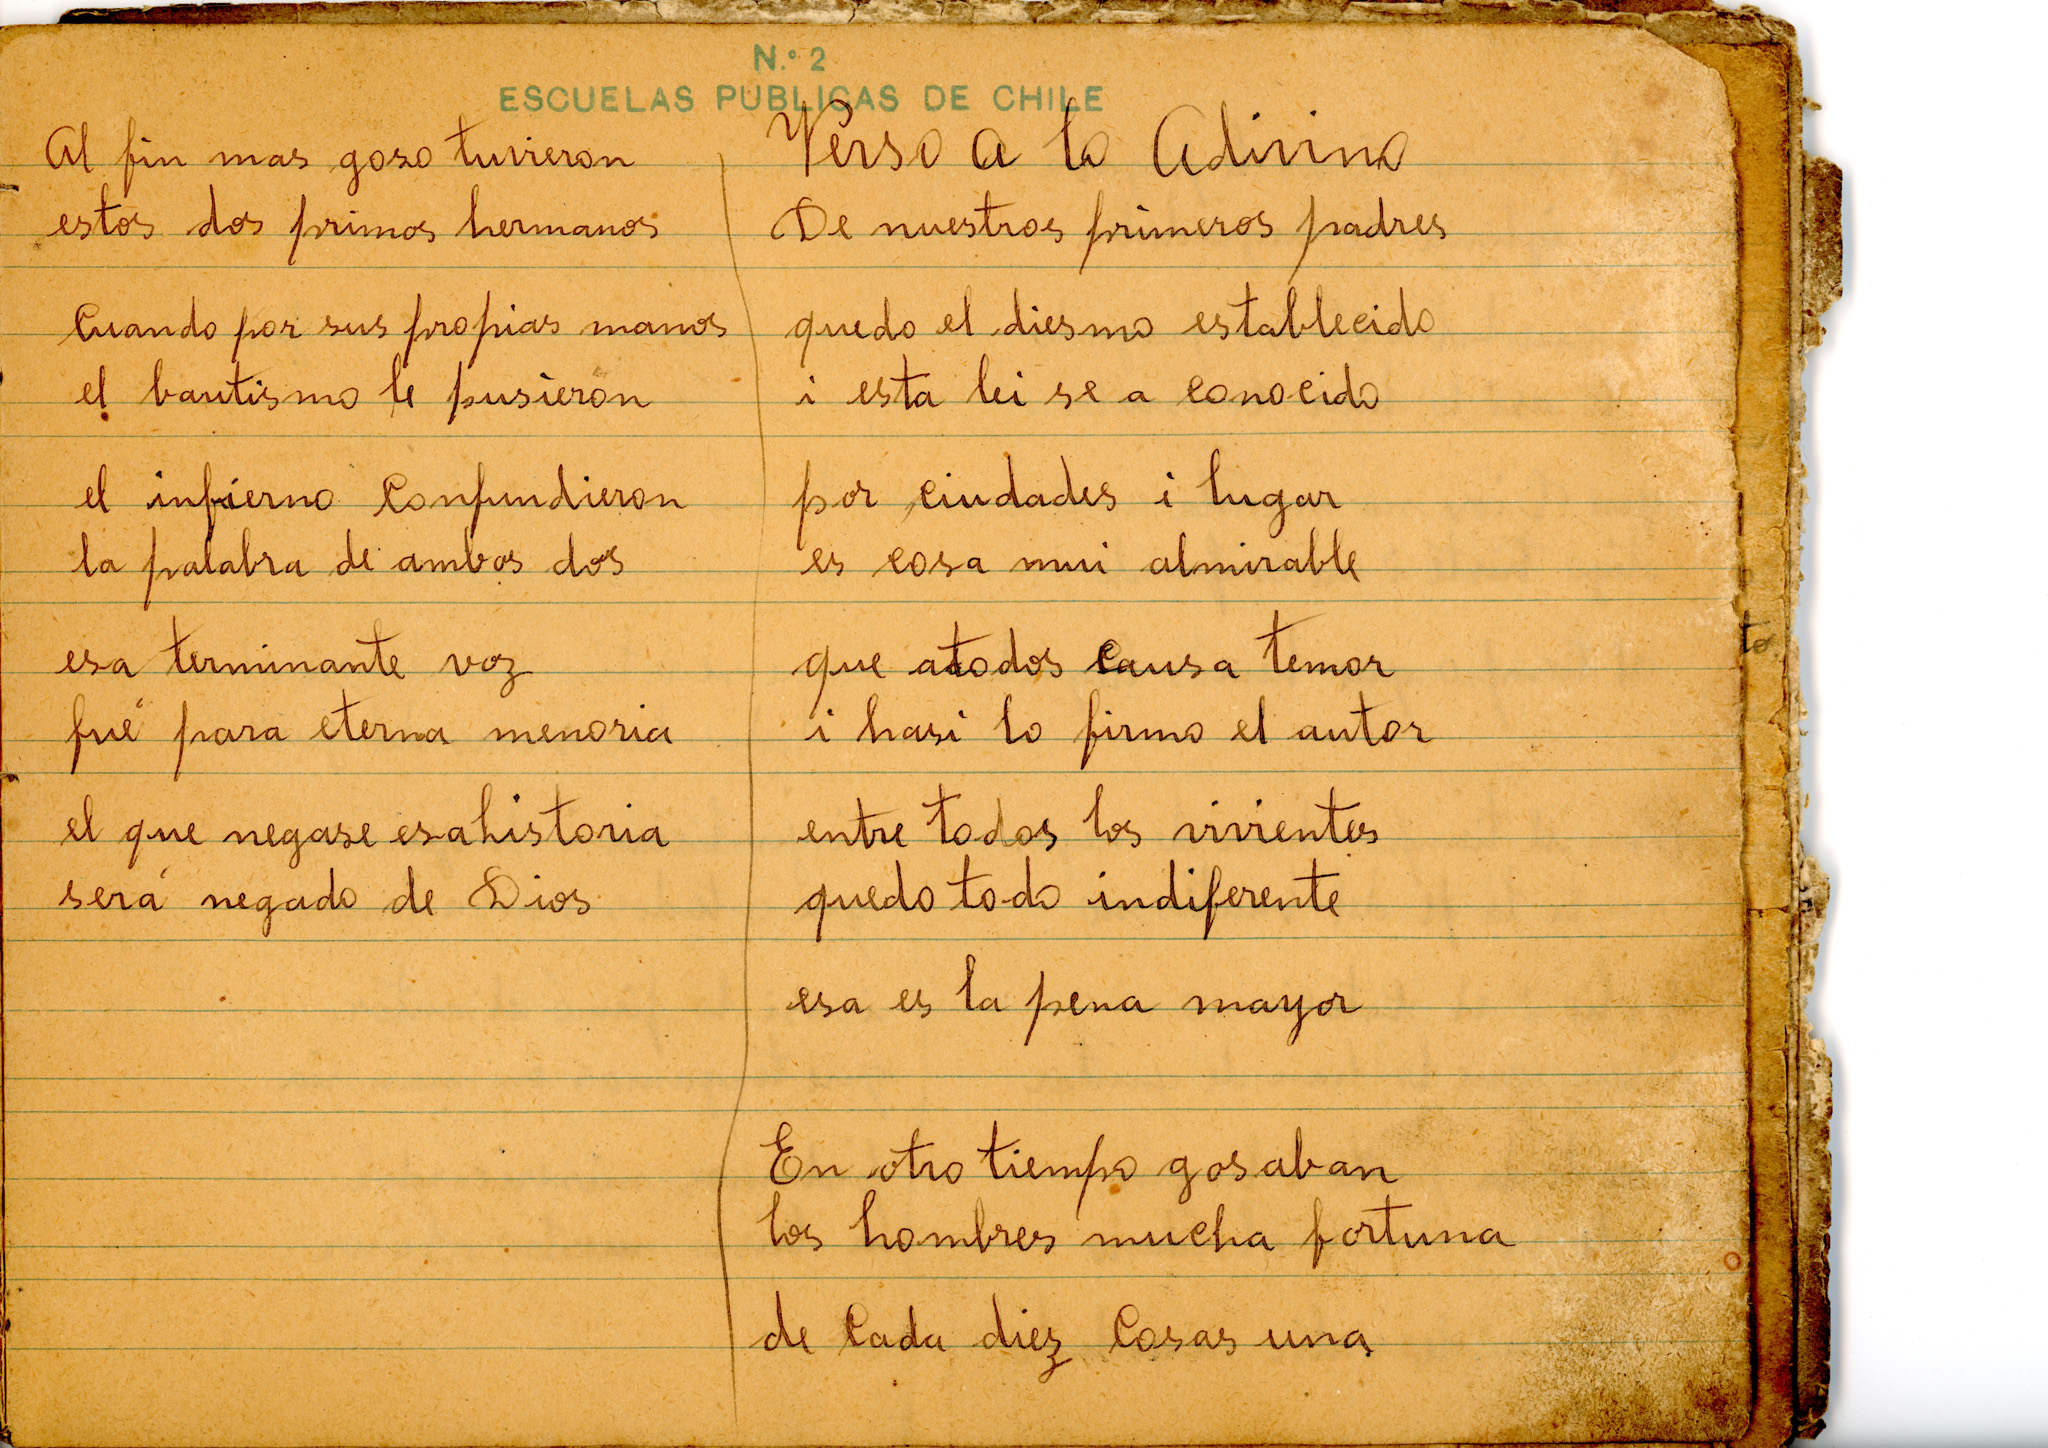 N.º 2
ESCUELAS PÚBLICAS DE CHILE
Al fin mas goso tuvieron
estos dos primos hermanos
Cuando por sus propias manos
el bautismo le pusieron
el infierno confundieron
la palabra de ambos dos
esa terminante voz
fué para eterna menoria
el que negase esahistoria
será negado de Dios
Verso a lo Adivino
De nuestros primeros padres
quedo el diesmo establecido
i esta lei se a conocido
por ciudades i lugar
es cosa mui almirable
que atodos causa temor
i hasi lo firmo el autor
entre todos los vivientes
quedo todo indiferente
esa es la pena mayor
En otro tiempo gosaban
los hombres mucha fortuna
de cada diez cosas una
to